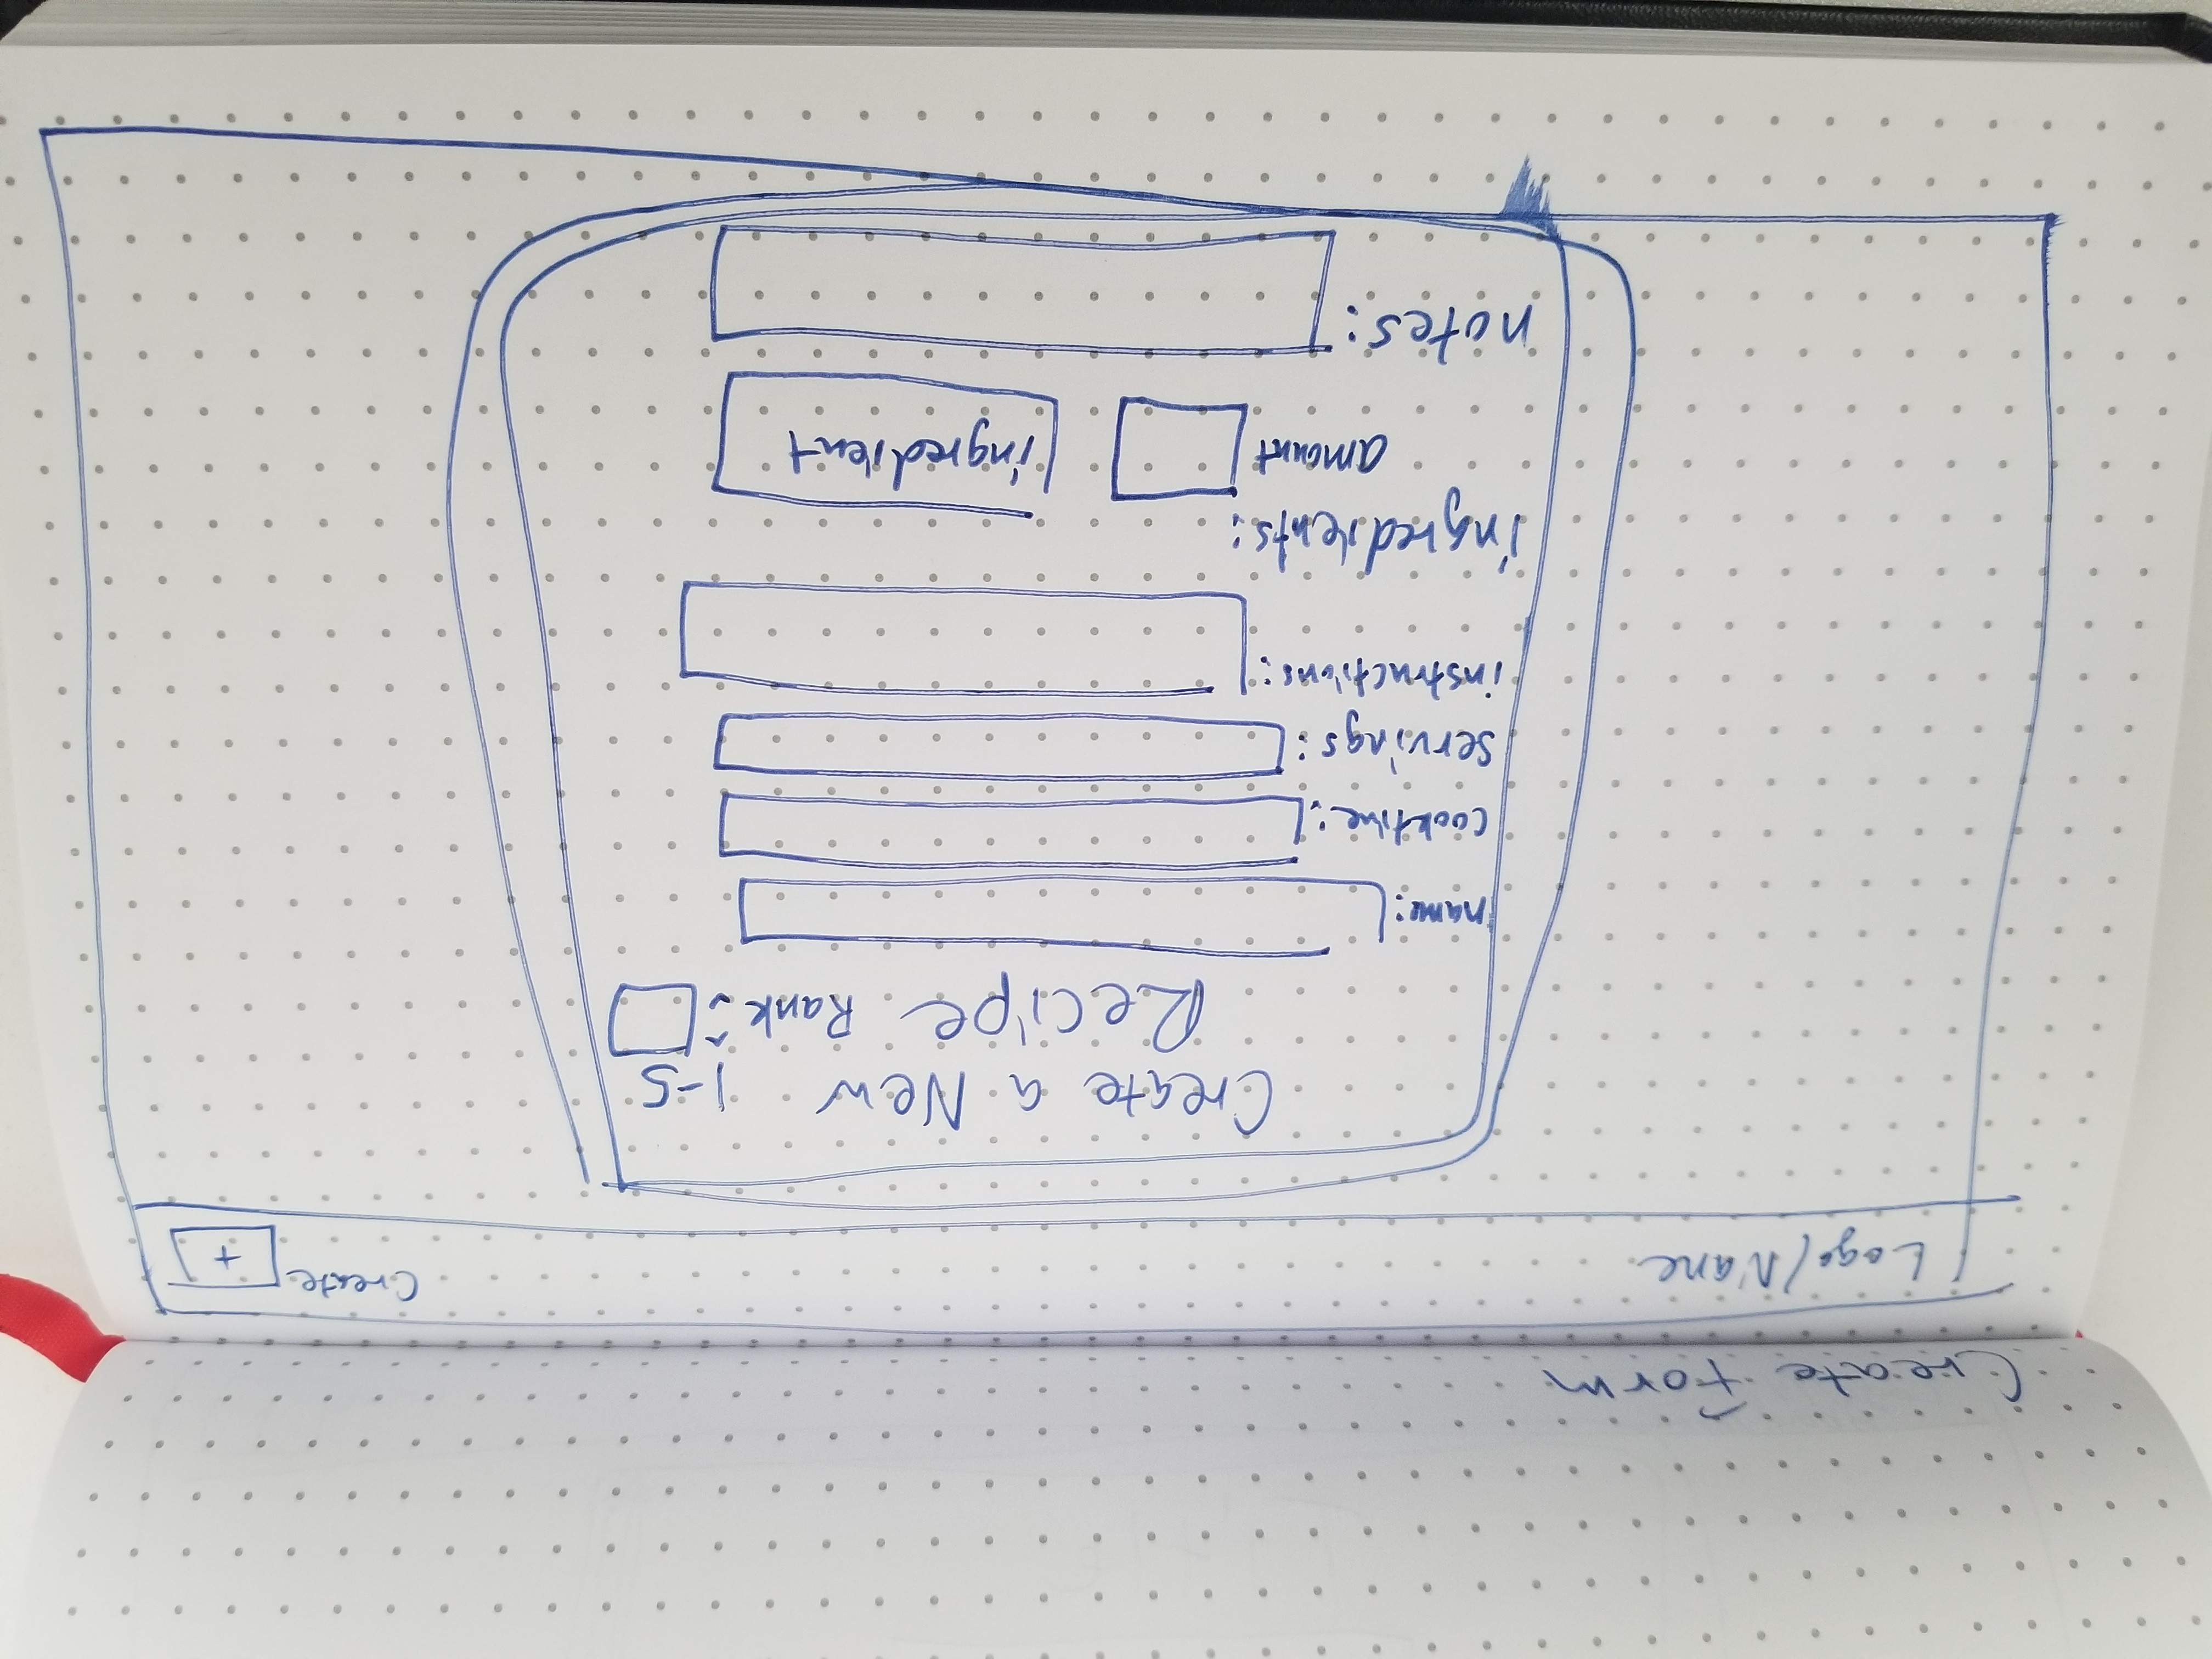 Create Form
Logo/Name
Create +
Create a New
Recipe
1-5
Rank:
name:
cooktime:
servings:
instructions:
ingredients:
amount
ingredient
notes: